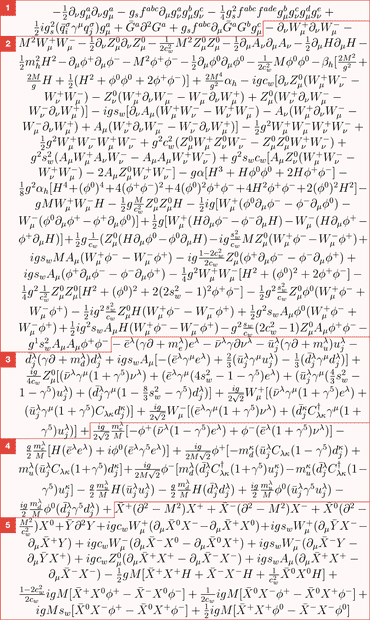 1 $-\frac{1}{2}\partial_\nu g^a_\mu\partial_\nu g^a_\mu - g_s f^{abc}\partial_\mu g^a_\nu g^b_\mu g^c_\nu - \frac{1}{4}g^2_s f^{abc}f^{ade}g^b_\mu g^c_\nu g^d_\mu g^e_\nu +$
$\frac{1}{2}ig^2_s(\bar{q}^\sigma_i\gamma^\mu q^\sigma_j)g^a_\mu + \bar{G}^a\partial^2G^a + g_s f^{abc}\partial_\mu\bar{G}^aG^bg^c_\mu - \partial_\nu W^+_\mu\partial_\nu W^-_\mu -$
2 $M^2W^+_\mu W^-_\mu - \frac{1}{2}\partial_\nu Z^0_\mu\partial_\nu Z^0_\mu - \frac{1}{2c^2_w}M^2Z^0_\mu Z^0_\mu - \frac{1}{2}\partial_\mu A_\nu\partial_\mu A_\nu - \frac{1}{2}\partial_\mu H\partial_\mu H -$
$\frac{1}{2}m^2_hH^2 - \partial_\mu\phi^+\partial_\mu\phi^- - M^2\phi^+\phi^- - \frac{1}{2}\partial_\mu\phi^0\partial_\mu\phi^0 - \frac{1}{2c^2_w}M\phi^0\phi^0 - \beta_h[\frac{2M^2}{g^2} +$
$\frac{2M}{g}H + \frac{1}{2}(H^2 + \phi^0\phi^0 + 2\phi^+\phi^-)] + \frac{2M^4}{g^2}\alpha_h - igc_w[\partial_\nu Z^0_\mu(W^+_\mu W^-_\nu -$
$W^+_\nu W^-_\mu) - Z^0_\nu(W^+_\mu\partial_\nu W^-_\mu - W^-_\mu\partial_\nu W^+_\mu) + Z^0_\mu(W^+_\nu\partial_\nu W^-_\mu -$
$W^-_\nu\partial_\nu W^+_\mu)] - igs_w[\partial_\nu A_\mu(W^+_\mu W^-_\nu - W^+_\nu W^-_\mu) - A_\nu(W^+_\mu\partial_\nu W^-_\mu -$
$W^-_\mu\partial_\nu W^+_\mu) + A_\mu(W^+_\nu\partial_\nu W^-_\mu - W^-_\nu\partial_\nu W^+_\mu)] - \frac{1}{2}g^2W^+_\mu W^-_\mu W^+_\nu W^-_\nu +$
$\frac{1}{2}g^2W^+_\mu W^-_\nu W^+_\mu W^-_\nu + g^2c^2_w(Z^0_\mu W^+_\mu Z^0_\nu W^-_\nu - Z^0_\mu Z^0_\mu W^+_\nu W^-_\nu) +$
$g^2s^2_w(A_\mu W^+_\mu A_\nu W^-_\nu - A_\mu A_\mu W^+_\nu W^-_\nu) + g^2s_wc_w[A_\mu Z^0_\nu(W^+_\mu W^-_\nu -$
$W^+_\nu W^-_\mu) - 2A_\mu Z^0_\mu W^+_\nu W^-_\nu] - g\alpha[H^3 + H\phi^0\phi^0 + 2H\phi^+\phi^-] -$
$\frac{1}{8}g^2\alpha_h[H^4 + (\phi^0)^4 + 4(\phi^+\phi^-)^2 + 4(\phi^0)^2\phi^+\phi^- + 4H^2\phi^+\phi^- + 2(\phi^0)^2H^2] -$
$gMW^+_\mu W^-_\mu H - \frac{1}{2}g\frac{M}{c^2_w}Z^0_\mu Z^0_\mu H - \frac{1}{2}ig[W^+_\mu(\phi^0\partial_\mu\phi^- - \phi^-\partial_\mu\phi^0) -$
$W^-_\mu(\phi^0\partial_\mu\phi^+ - \phi^+\partial_\mu\phi^0)] + \frac{1}{2}g[W^+_\mu(H\partial_\mu\phi^- - \phi^-\partial_\mu H) - W^-_\mu(H\partial_\mu\phi^+ -$
$\phi^+\partial_\mu H)] + \frac{1}{2}g\frac{1}{c_w}(Z^0_\mu(H\partial_\mu\phi^0 - \phi^0\partial_\mu H) - ig\frac{s^2_w}{c_w}MZ^0_\mu(W^+_\mu\phi^- - W^-_\mu\phi^+) +$
$igs_wMA_\mu(W^+_\mu\phi^- - W^-_\mu\phi^+) - ig\frac{1-2c^2_w}{2c_w}Z^0_\mu(\phi^+\partial_\mu\phi^- - \phi^-\partial_\mu\phi^+) +$
$igs_wA_\mu(\phi^+\partial_\mu\phi^- - \phi^-\partial_\mu\phi^+) - \frac{1}{4}g^2W^+_\mu W^-_\mu[H^2 + (\phi^0)^2 + 2\phi^+\phi^-] -$
$\frac{1}{4}g^2\frac{1}{c^2_w}Z^0_\mu Z^0_\mu[H^2 + (\phi^0)^2 + 2(2s^2_w - 1)^2\phi^+\phi^-] - \frac{1}{2}g^2\frac{s^2_w}{c_w}Z^0_\mu\phi^0(W^+_\mu\phi^- +$
$W^-_\mu\phi^+) - \frac{1}{2}ig^2\frac{s^2_w}{c_w}Z^0_\mu H(W^+_\mu\phi^- - W^-_\mu\phi^+) + \frac{1}{2}g^2s_wA_\mu\phi^0(W^+_\mu\phi^- +$
$W^-_\mu\phi^+) + \frac{1}{2}ig^2s_wA_\mu H(W^+_\mu\phi^- - W^-_\mu\phi^+) - g^2\frac{s_w}{c_w}(2c^2_w - 1)Z^0_\mu A_\mu\phi^+\phi^- -$
$g^1s^2_wA_\mu A_\mu\phi^+\phi^- - \bar{e}^\lambda(\gamma\partial + m^\lambda_e)e^\lambda - \bar{\nu}^\lambda\gamma\partial\nu^\lambda - \bar{u}^\lambda_j(\gamma\partial + m^\lambda_u)u^\lambda_j -$
3 $\bar{d}^\lambda_j(\gamma\partial + m^\lambda_d)d^\lambda_j + igs_wA_\mu[-(\bar{e}^\lambda\gamma^\mu e^\lambda) + \frac{2}{3}(\bar{u}^\lambda_j\gamma^\mu u^\lambda_j) - \frac{1}{3}(\bar{d}^\lambda_j\gamma^\mu d^\lambda_j)] +$
$\frac{ig}{4c_w}Z^0_\mu[(\bar{\nu}^\lambda\gamma^\mu(1+\gamma^5)\nu^\lambda) + (\bar{e}^\lambda\gamma^\mu(4s^2_w - 1 - \gamma^5)e^\lambda) + (\bar{u}^\lambda_j\gamma^\mu(\frac{4}{3}s^2_w -$
$1 - \gamma^5)u^\lambda_j) + (\bar{d}^\lambda_j\gamma^\mu(1 - \frac{8}{3}s^2_w - \gamma^5)d^\lambda_j)] + \frac{ig}{2\sqrt{2}}W^+_\mu[(\bar{\nu}^\lambda\gamma^\mu(1+\gamma^5)e^\lambda) +$
$(\bar{u}^\lambda_j\gamma^\mu(1+\gamma^5)C_{\lambda\kappa}d^\kappa_j)] + \frac{ig}{2\sqrt{2}}W^-_\mu[(\bar{e}^\lambda\gamma^\mu(1+\gamma^5)\nu^\lambda) + (\bar{d}^\kappa_jC^\dagger_{\lambda\kappa}\gamma^\mu(1 +$
$\gamma^5)u^\lambda_j)] + \frac{ig}{2\sqrt{2}}\frac{m^\lambda_e}{M}[-\phi^+(\bar{\nu}^\lambda(1-\gamma^5)e^\lambda) + \phi^-(\bar{e}^\lambda(1+\gamma^5)\nu^\lambda)] -$
4 $\frac{g}{2}\frac{m^\lambda_e}{M}[H(\bar{e}^\lambda e^\lambda) + i\phi^0(\bar{e}^\lambda\gamma^5e^\lambda)] + \frac{ig}{2M\sqrt{2}}\phi^+[-m^\kappa_d(\bar{u}^\lambda_jC_{\lambda\kappa}(1-\gamma^5)d^\kappa_j) +$
$m^\lambda_u(\bar{u}^\lambda_jC_{\lambda\kappa}(1+\gamma^5)d^\kappa_j] + \frac{ig}{2M\sqrt{2}}\phi^-[m^\lambda_d(\bar{d}^\lambda_jC^\dagger_{\lambda\kappa}(1+\gamma^5)u^\kappa_j) - m^\kappa_u(\bar{d}^\lambda_jC^\dagger_{\lambda\kappa}(1 -$
$\gamma^5)u^\kappa_j] - \frac{g}{2}\frac{m^\lambda_u}{M}H(\bar{u}^\lambda_ju^\lambda_j) - \frac{g}{2}\frac{m^\lambda_d}{M}H(\bar{d}^\lambda_jd^\lambda_j) + \frac{ig}{2}\frac{m^\lambda_u}{M}\phi^0(\bar{u}^\lambda_j\gamma^5u^\lambda_j) -$
$\frac{ig}{2}\frac{m^\lambda_d}{M}\phi^0(\bar{d}^\lambda_j\gamma^5d^\lambda_j) + \bar{X}^+(\partial^2 - M^2)X^+ + \bar{X}^-(\partial^2 - M^2)X^- + \bar{X}^0(\partial^2 -$
5 $\frac{M^2}{c^2_w})X^0 + \bar{Y}\partial^2Y + igc_wW^+_\mu(\partial_\mu\bar{X}^0X^- - \partial_\mu\bar{X}^+X^0) + igs_wW^+_\mu(\partial_\mu\bar{Y}X^- -$
$\partial_\mu\bar{X}^+Y) + igc_wW^-_\mu(\partial_\mu\bar{X}^-X^0 - \partial_\mu\bar{X}^0X^+) + igs_wW^-_\mu(\partial_\mu\bar{X}^-Y -$
$\partial_\mu\bar{Y}X^+) + igc_wZ^0_\mu(\partial_\mu\bar{X}^+X^+ - \partial_\mu\bar{X}^-X^-) + igs_wA_\mu(\partial_\mu\bar{X}^+X^+ -$
$\partial_\mu\bar{X}^-X^-) - \frac{1}{2}gM[\bar{X}^+X^+H + \bar{X}^-X^-H + \frac{1}{c^2_w}\bar{X}^0X^0H] +$
$\frac{1-2c^2_w}{2c_w}igM[\bar{X}^+X^0\phi^+ - \bar{X}^-X^0\phi^-] + \frac{1}{2c_w}igM[\bar{X}^0X^-\phi^+ - \bar{X}^0X^+\phi^-] +$
$igMs_w[\bar{X}^0X^-\phi^+ - \bar{X}^0X^+\phi^-] + \frac{1}{2}igM[\bar{X}^+X^+\phi^0 - \bar{X}^-X^-\phi^0]$